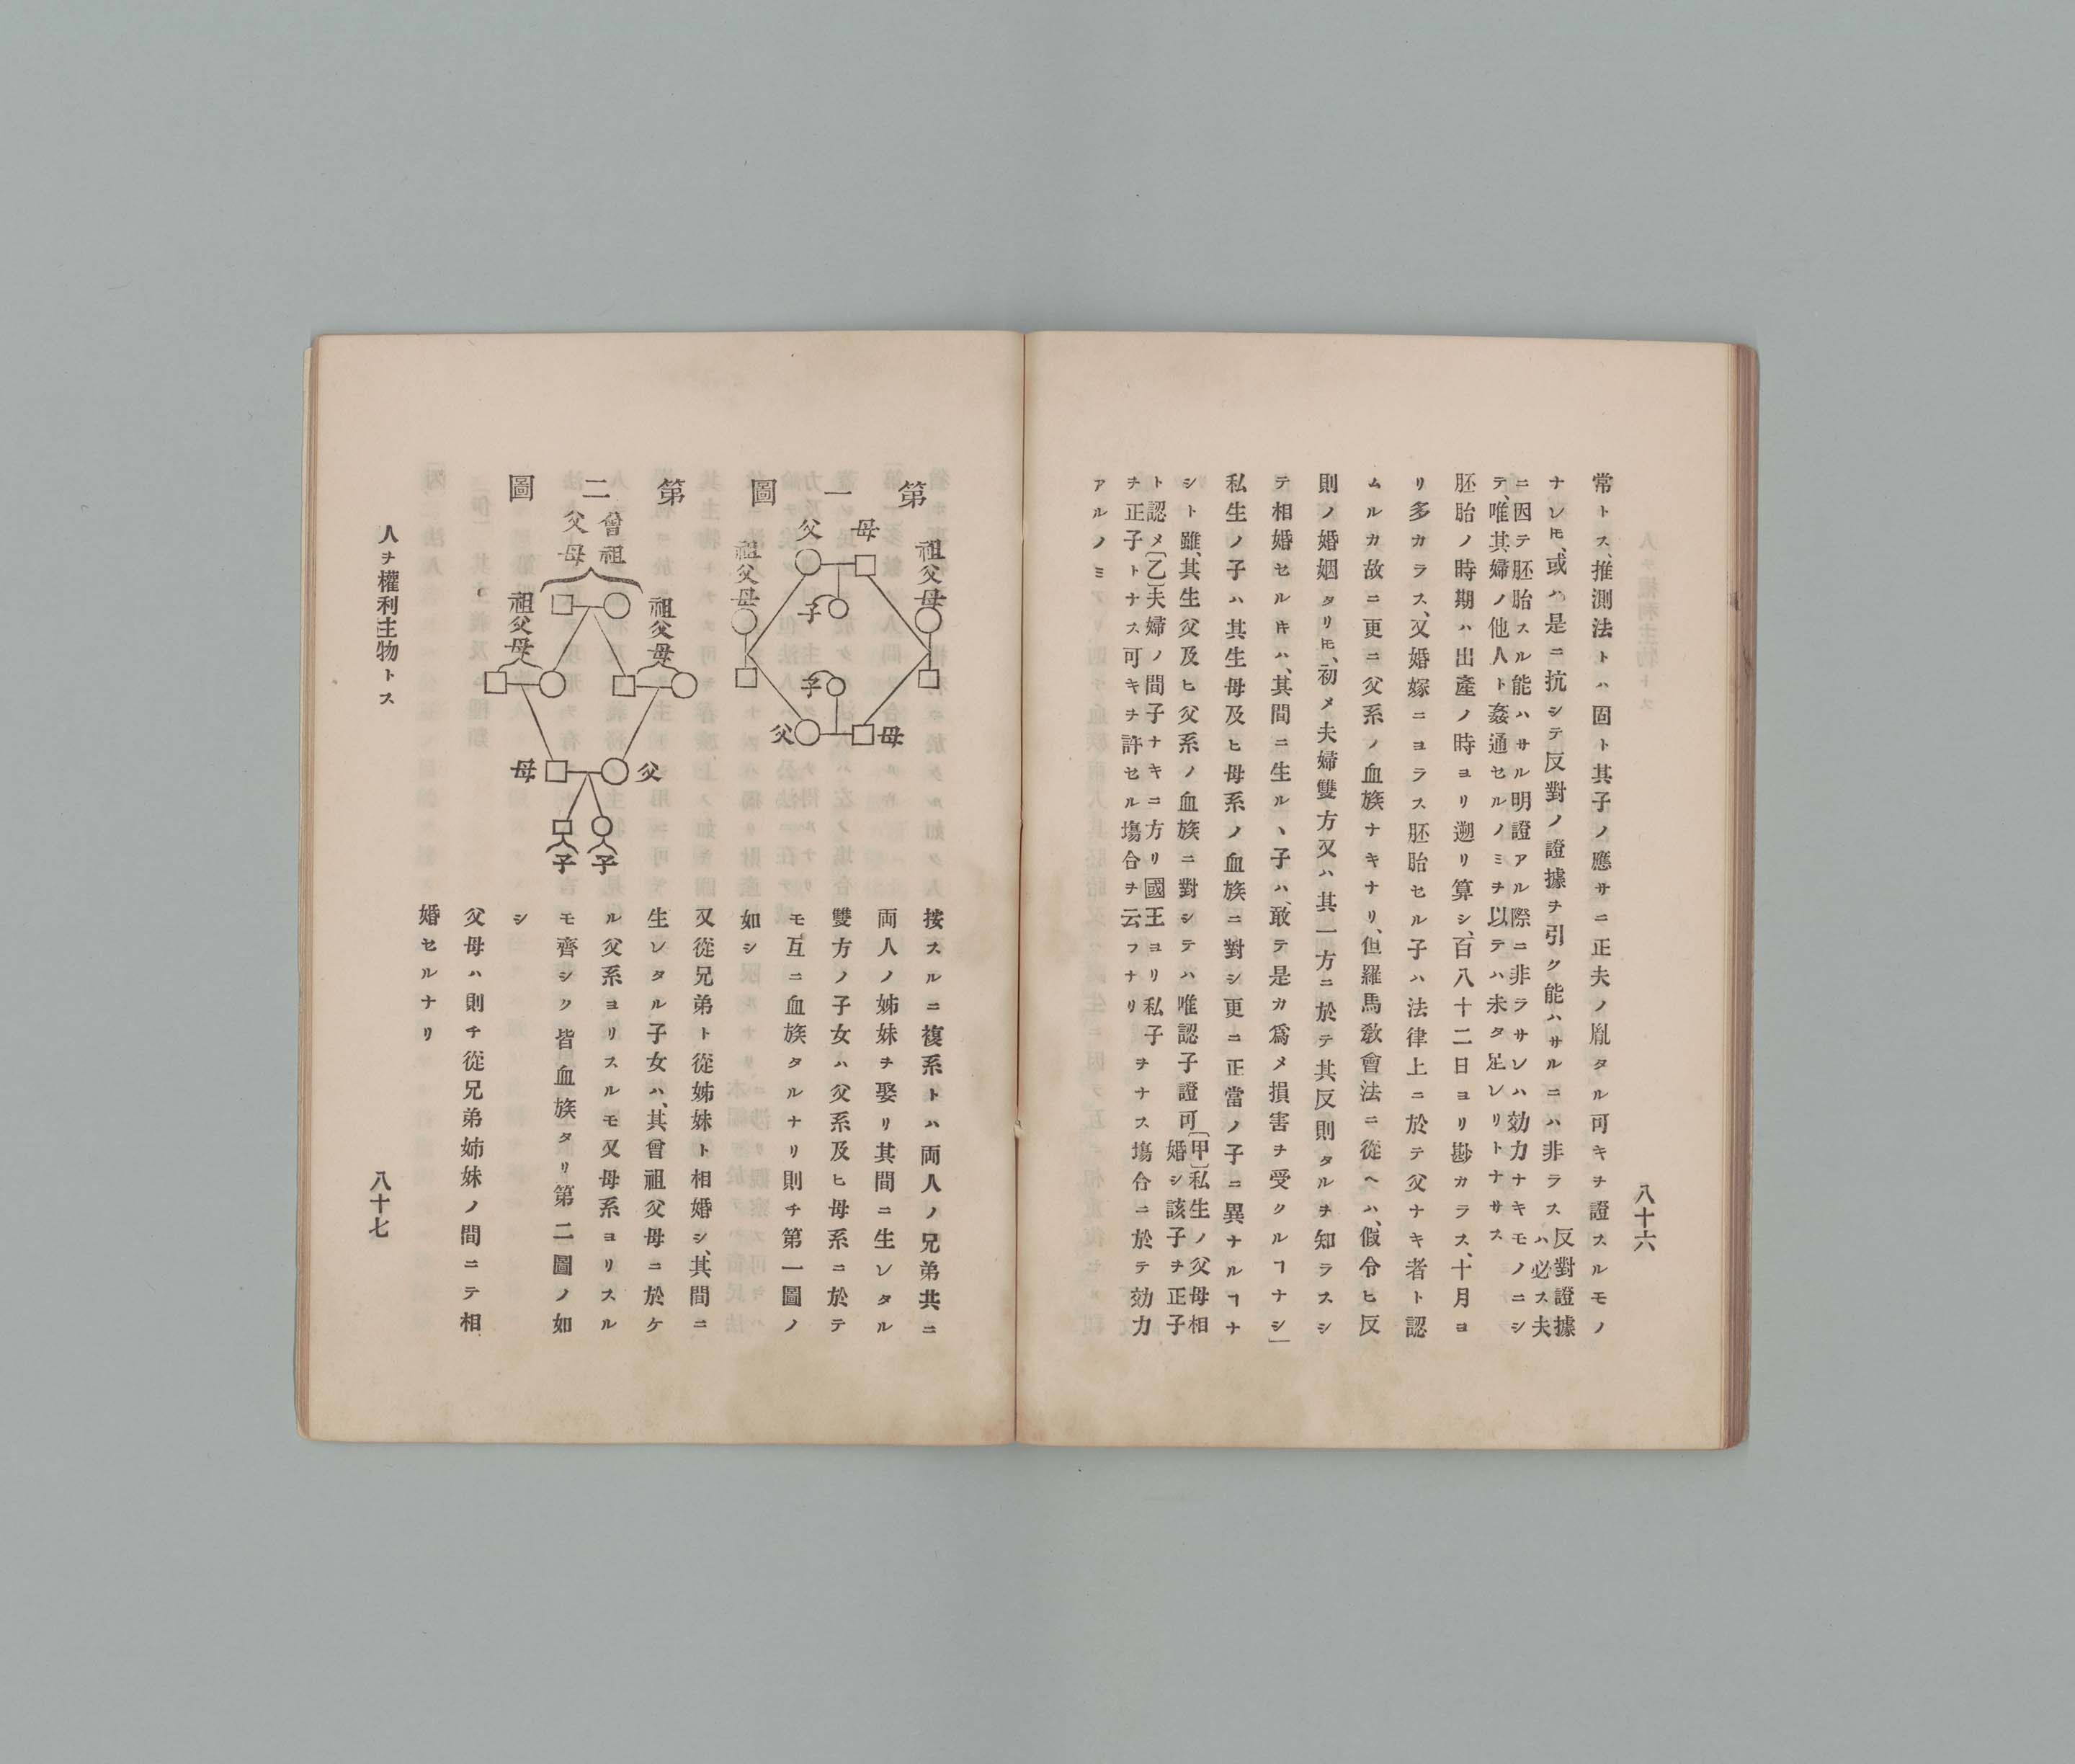 八十六
常トス、推測法トハ固ト其子ノ應サニ正夫ノ胤タル可キヲ證スルモノ
ナレ𪜈、或ハ是ニ抗シテ反對ノ證據ヲ引ク能ハサルニハ非ラス
反對證據ハ必ス夫
ニ因テ胚胎スル能ハサル明證アル際ニ非ラサレハ効力ナキモノニシ
テ、唯其婦ノ他人ト姦通セルノミヲ以テハ未タ足レリトナサス
胚胎ノ時期ハ出產ノ時ヨリ遡リ算シ、百八十二日ヨリ尠カラス、十月ヨ
リ多カラス、又婚嫁ニヨラス胚胎セル子ハ法律上ニ於テ父ナキ者ト認
ムルカ故ニ更ニ父系ノ血族ナキナリ、但羅馬敎會法ニ從ヘハ、假令ヒ反
則ノ婚姻タリ𪜈、初メ夫婦雙方又ハ其一方ニ於テ其反則タルヲ知ラスシ
テ相婚セルキハ、其間ニ生ル、子ハ、敢テ是カ爲メ損害ヲ受クルヿナシ」
私生ノ子ハ其生母及ヒ母系ノ血族ニ對シ更ニ正當ノ子ニ異ナルヿナ
シト雖、其生父及ヒ父系ノ血族ニ對シテハ唯認子證可
〔甲〕私生ノ父母相婚シ該子ヲ正子
ト認メ〔乙〕夫婦ノ間子ナキニ方リ國王ヨリ私子
ヲ正子トナス可キヲ許セル塲合ヲ云フナリ
ヲナス塲合ニ於テ効力
アルノミ
第一圖
祖父母
母
父
子
祖父母
子
母
父
第二圖
曾祖父母
祖父母
祖父母
父
母
子
子
按スルニ複系トハ両人ノ兄弟共ニ
両人ノ姊妹ヲ娶リ其間ニ生レタル
雙方ノ子女ハ父系及ヒ母系ニ於テ
モ互ニ血族タルナリ則チ第一圖ノ
如シ
又從兄弟ト從姊妹ト相婚シ、其間ニ
生レタル子女ハ、其曾祖父母ニ於ケ
ル父系ヨリスルモ又母系ヨリスル
モ齊シク皆血族タリ第二圖ノ如
シ
父母ハ則チ從兄弟姊妹ノ間ニテ相
婚セルナリ
人ヲ權利主物トス
八十七